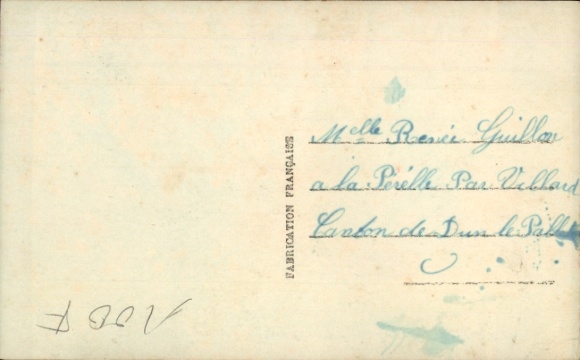 FABRICATION FRANÇAISE
Melle Renée Guillon
a la Pérelle Par Villard
Canton de Dun le Pall